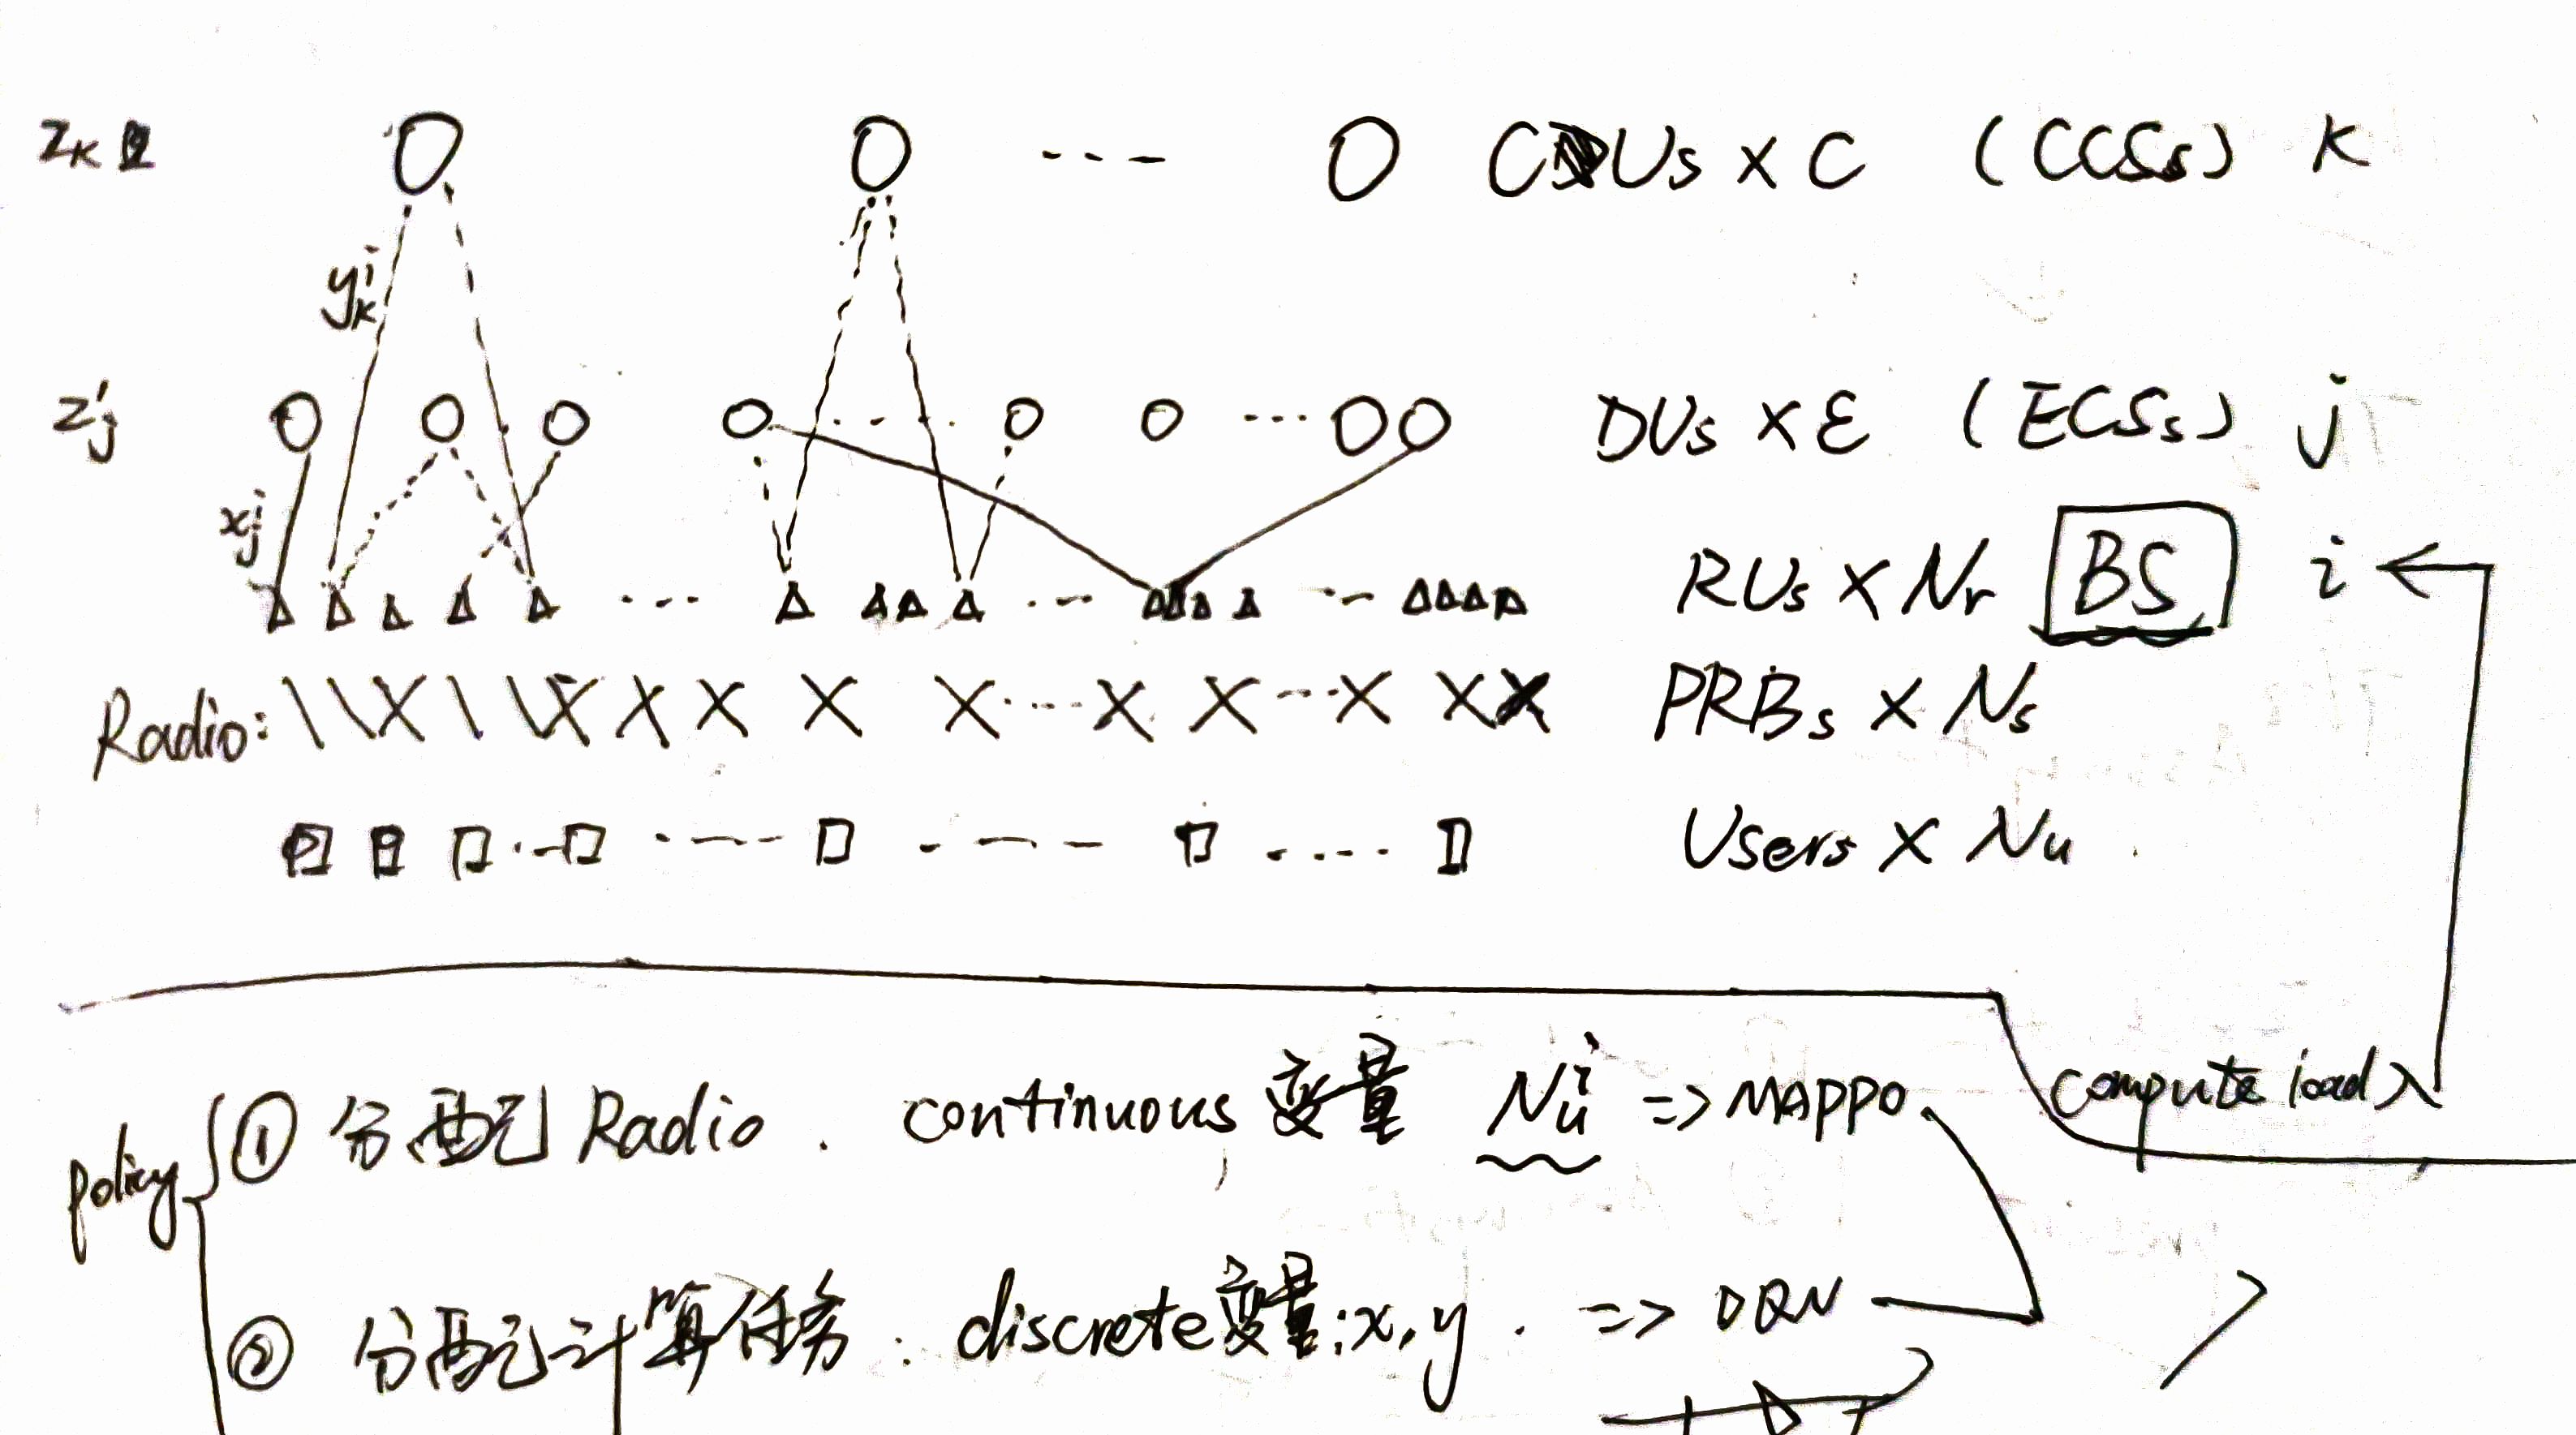 zk CUs × C (CCSs) K
y^i_k
z'j DUs × ε (ECSs) j
x^i_j
RUs × Nr BS i
Radio: PRBs × Ns
Users × Nu
compute load λ
policy ① 分配 Radio. continuous 变量 N^i_u => MAPPO
② 分配计算任务: discrete 变量: x, y. => DQN